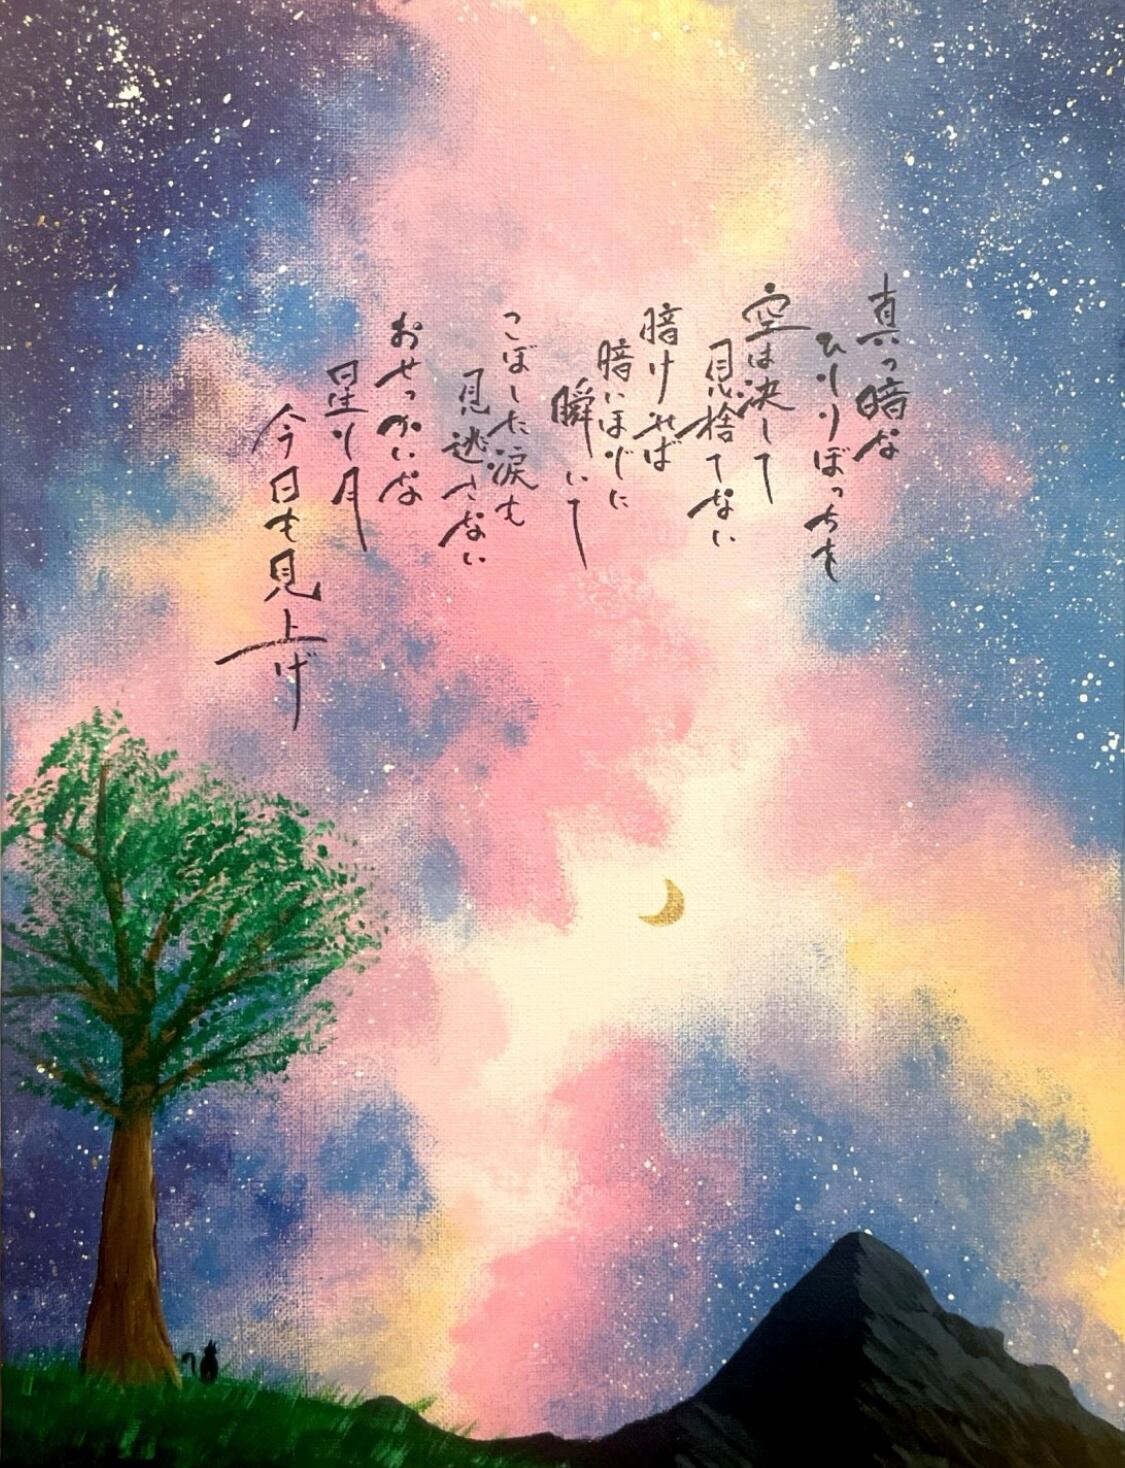 真っ暗な
ひとりぼっちも
空は決して
見捨てない
暗ければ
暗いほどに
瞬いて
こぼした涙も
見逃さない
おせっかいな
星と月
今日も見上げ